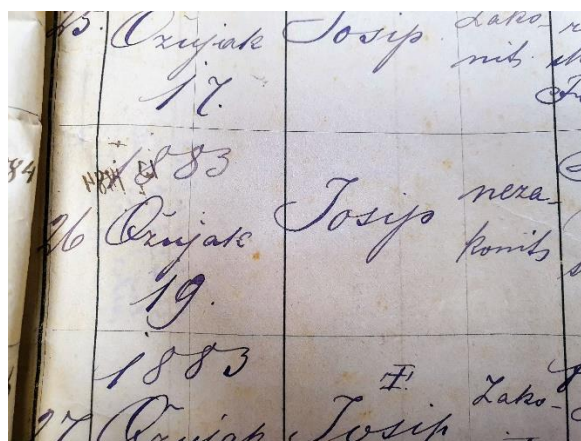 25. Ožujak Josip zako-
17. nit
1883
26 Ožujak Josip neza-
19. konit
1883
27 Ožujak Josip Zako-